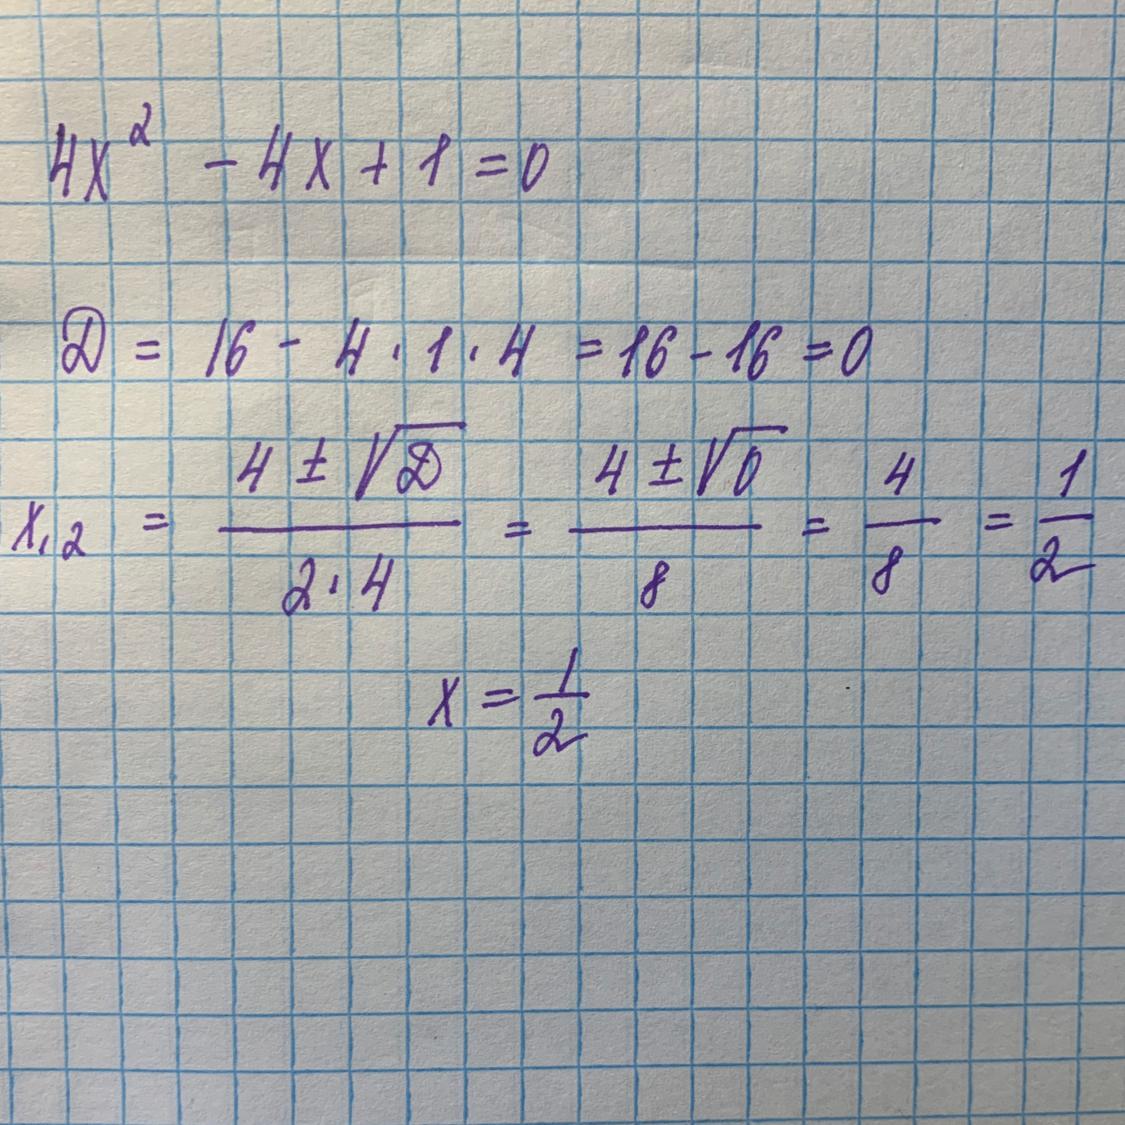 4x² - 4x + 1 = 0
D = 16 - 4 · 1 · 4 = 16 - 16 = 0
x₁,₂ = (4 ± √D)/(2 · 4) = (4 ± √0)/8 = 4/8 = 1/2
x = 1/2